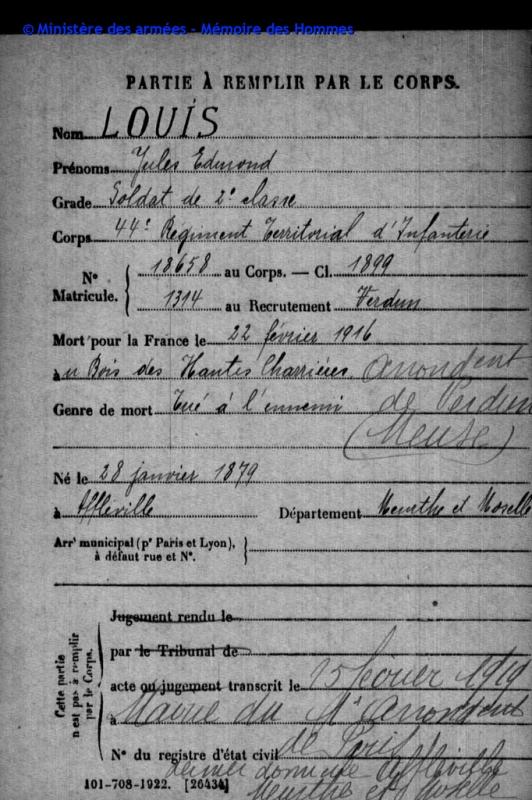 © Ministère des armées - Mémoire des Hommes
PARTIE À REMPLIR PAR LE CORPS.
Nom LOUIS
Prénoms Jules Edmond
Grade Soldat de 2e classe
Corps 44e Régiment Territorial d'Infanterie
N° Matricule. { 18658 au Corps. — Cl. 1899
1314 au Recrutement Verdun
Mort pour la France le 22 février 1916
à u Bois des Hautes Charrières arrondent
Genre de mort Tué à l'ennemi de Verdun
(Meuse)
Né le 28 janvier 1879
à Affléville Département Meurthe et Moselle
Arr' municipal (p' Paris et Lyon),
à défaut rue et N°. }
Cette partie n'est pas à remplir par le Corps.
Jugement rendu le
par le Tribunal de
acte ou jugement transcrit le 15 février 1919
à Mairie du arrondent
N° du registre d'état civil de Paris
dernier domicile Affléville
101-708-1922. [26434] Meurthe et Moselle